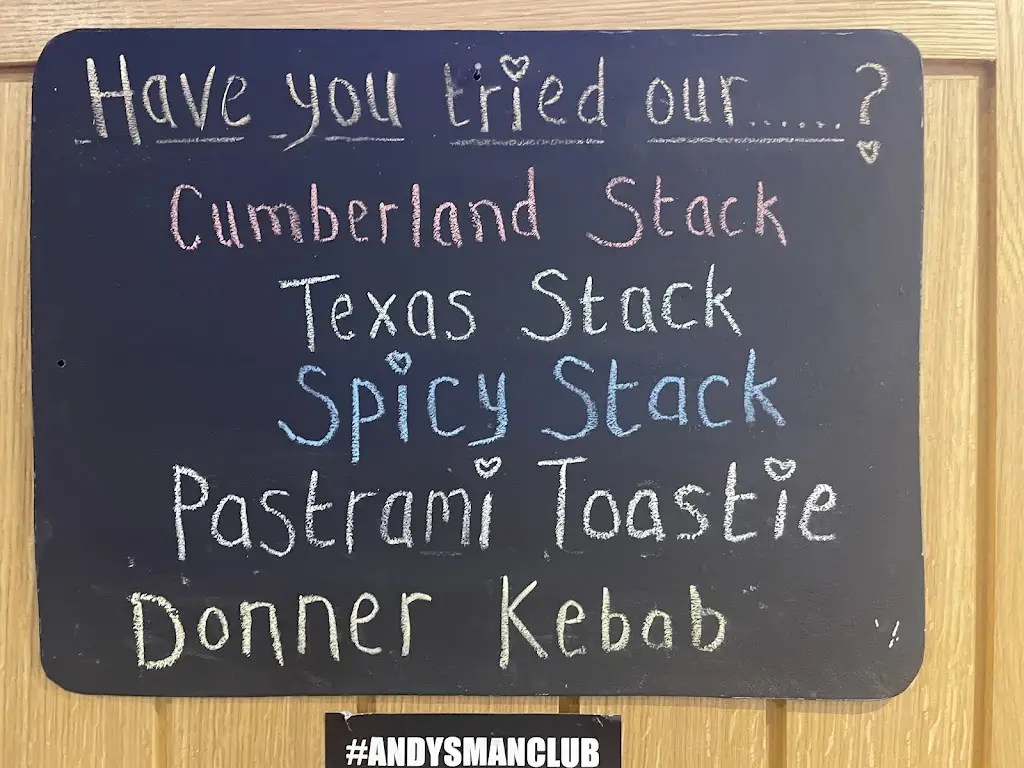 Have you tried our......?
Cumberland Stack
Texas Stack
Spicy Stack
Pastrami Toastie
Donner Kebab
#ANDYSMANCLUB